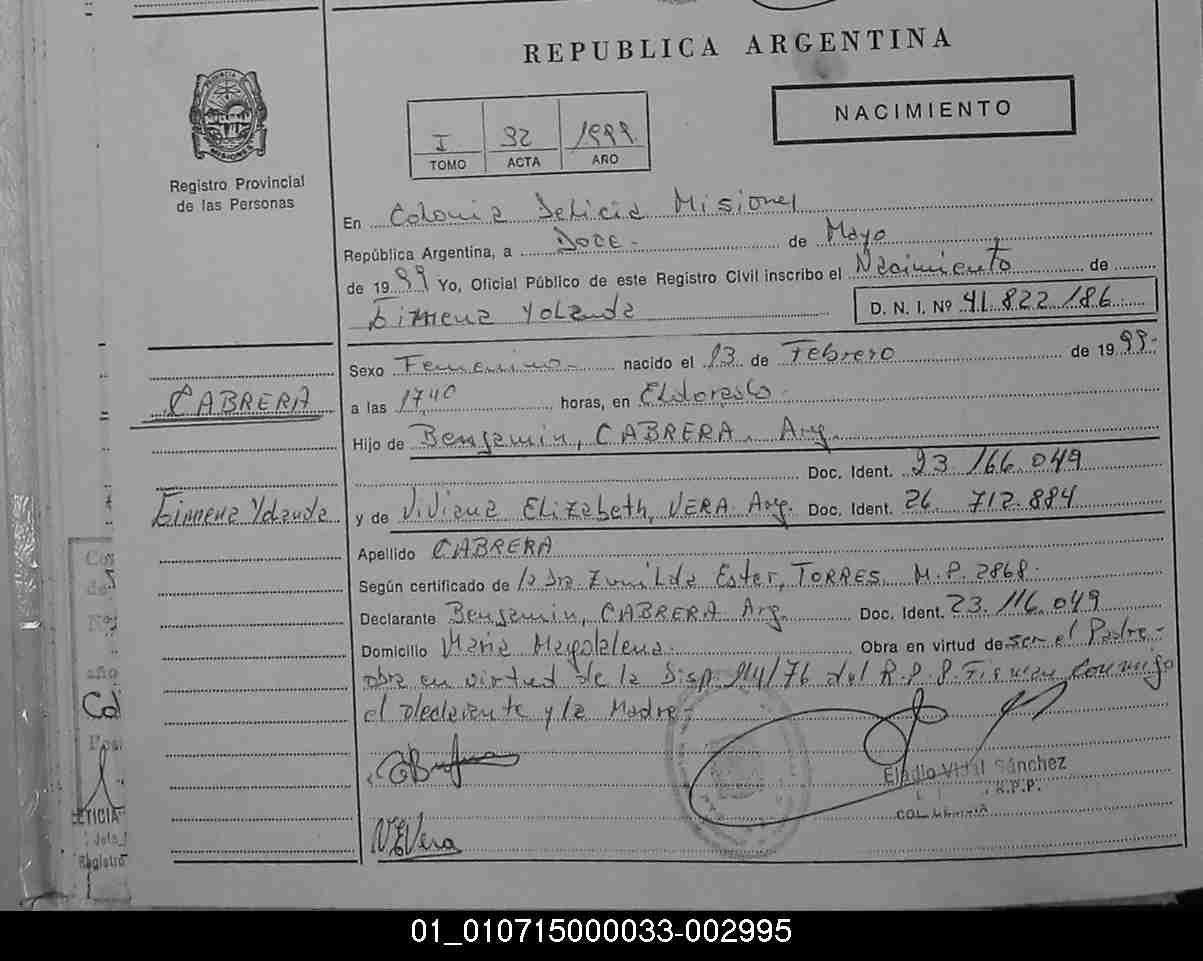 REPUBLICA ARGENTINA
NACIMIENTO
I 92 1999
TOMO ACTA AÑO
Registro Provincial
de las Personas
En Colonia Delicia Misiones
República Argentina, a Doce.- de Mayo
de 1999 Yo, Oficial Público de este Registro Civil inscribo el Nacimiento de
Gimena Yolanda D. N. I. Nº 41.822.186
Sexo Femenino.- nacido el 13 de Febrero de 1999.-
CABRERA
a las 17,40 horas, en Eldorado.
Hijo de Benjamin, CABRERA. Arg.
Doc. Ident. 23.166.049
Gimena Yolanda
y de Viviana Elizabeth, VERA. Arg. Doc. Ident. 26 712.884
Apellido CABRERA
Según certificado de la Dra. Zunilda Ester, TORRES. M.P. 2868.
Declarante Benjamin, CABRERA Arg. Doc. Ident. 23.116.049
Domicilio Maria Magdalena. Obra en virtud de ser el Padre.-
obra en virtud de la Disp. 114/76 del R.P.P. Firman conmigo
el declarante y la Madre.-
Eladio Vidal Sánchez
R.P.P.
COL. DELICIA
VEVera
LETICIA
Registro
01_010715000033-002995